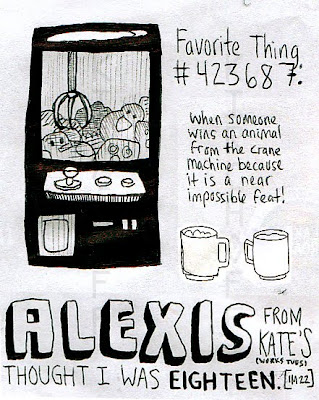 Favorite Thing
#423687:
When someone
wins an animal
from the crane
machine because
it is a near
impossible feat!
ALEXIS FROM
KATE'S
(WORKS TUES)
THOUGHT I WAS EIGHTEEN. [IM 22]